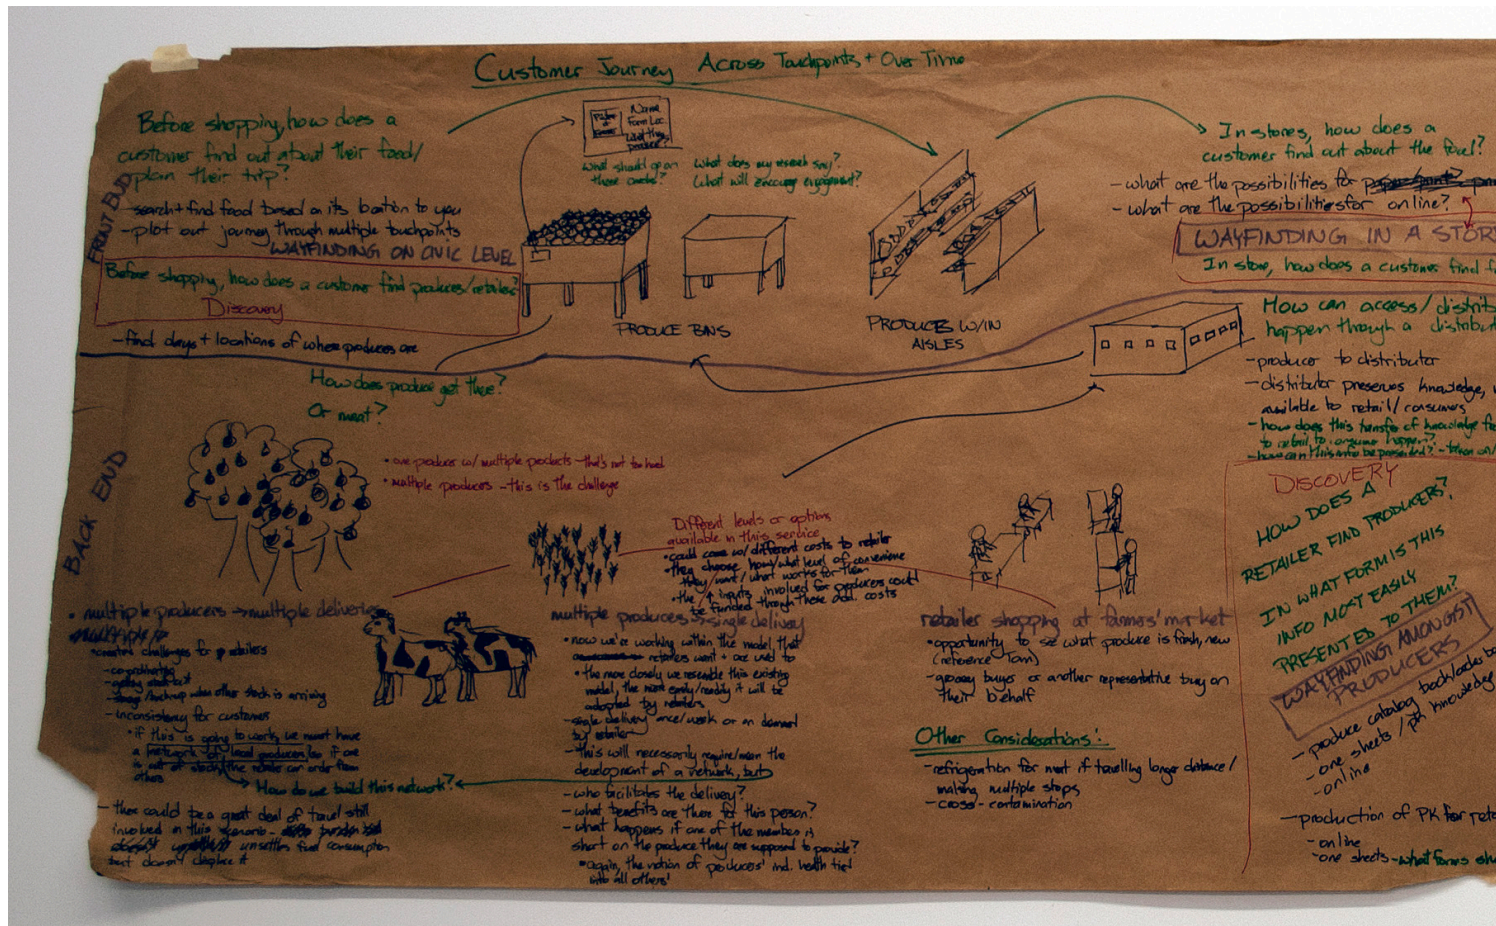 Customer Journey Across Touchpoints + Over Time
Before shopping, how does a
customer find out about their food/
plan their trip?
- search + find food based on its location to you
- plot out journey through multiple touchpoints
WAYFINDING ON CIVIC LEVEL
Before shopping, how does a customer find produces/retailers?
Discovery
- find days + locations of where produces are
FRONT END
Name
Farm Loc
What they
produce?
What should go on
these cards?
What does my research say?
What will encourage engagement?
PRODUCE BINS
PRODUCES W/IN
AISLES
In stores, how does a
customer find out about the food?
- what are the possibilities for
- what are the possibilities for online?
WAYFINDING IN A STOR
In store, how does a customer find f
How can access/distrib
happen through a distribut
- producer to distributor
- distributor preserves knowledge,
available to retail/consumers
- how does this transfer of knowledge
to retail to consumer happen?
- how can this info be presented? - taken on/
BACK END
How does produce get there?
Or meat?
• one producer w/ multiple products - that's not too hard
• multiple producers - this is the challenge
Different levels or options
available in this service
• could come w/ different costs to retailer
• they choose how/what level of convenience
they want/what works for them
• the ↑ inputs involved for producers could
be funded through these add. costs
• multiple producers → multiple deliveries
• creates challenges for retailers
- co-ordinating
- backup when other stock is arriving
- inconsistency for customer
• if this is going to work, we must have
a network of local producers so if one
is out of stock, the retailer can order from
others
→ How do we build this network?
- there could be a great deal of travel still
involved in this scenario -
unsettles fuel consumption
but doesn't displace it
multiple producers → single delivery
• now we're working within the model that
retailers want + are used to
• the more closely we resemble this existing
model, the more easily/readily it will be
adopted by retailers
- single delivery once/week or on demand
by retailer
- this will necessarily require/mean the
development of a network, but
- who facilitates the delivery?
- what benefits are there for this person?
- what happens if one of the members is
short on the produce they are supposed to provide?
• again, the notion of producers' ind. health tied
into all others'
retailer shopping at farmers' market
• opportunity to see what produce is fresh, new
(reference Tom)
- grocery buyers or another representative buy on
their behalf
Other Considerations:
- refrigeration for meat if travelling longer distance/
making multiple stops
- cross-contamination
DISCOVERY
HOW DOES A
RETAILER FIND PRODUCERS?
IN WHAT FORM IS THIS
INFO MOST EASILY
PRESENTED TO THEM?
WAYFINDING AMONGST
PRODUCERS
- produce catalog
- one sheets/PK knowledge
- online
- production of PK for reta
- online
- one sheets - what forms sh